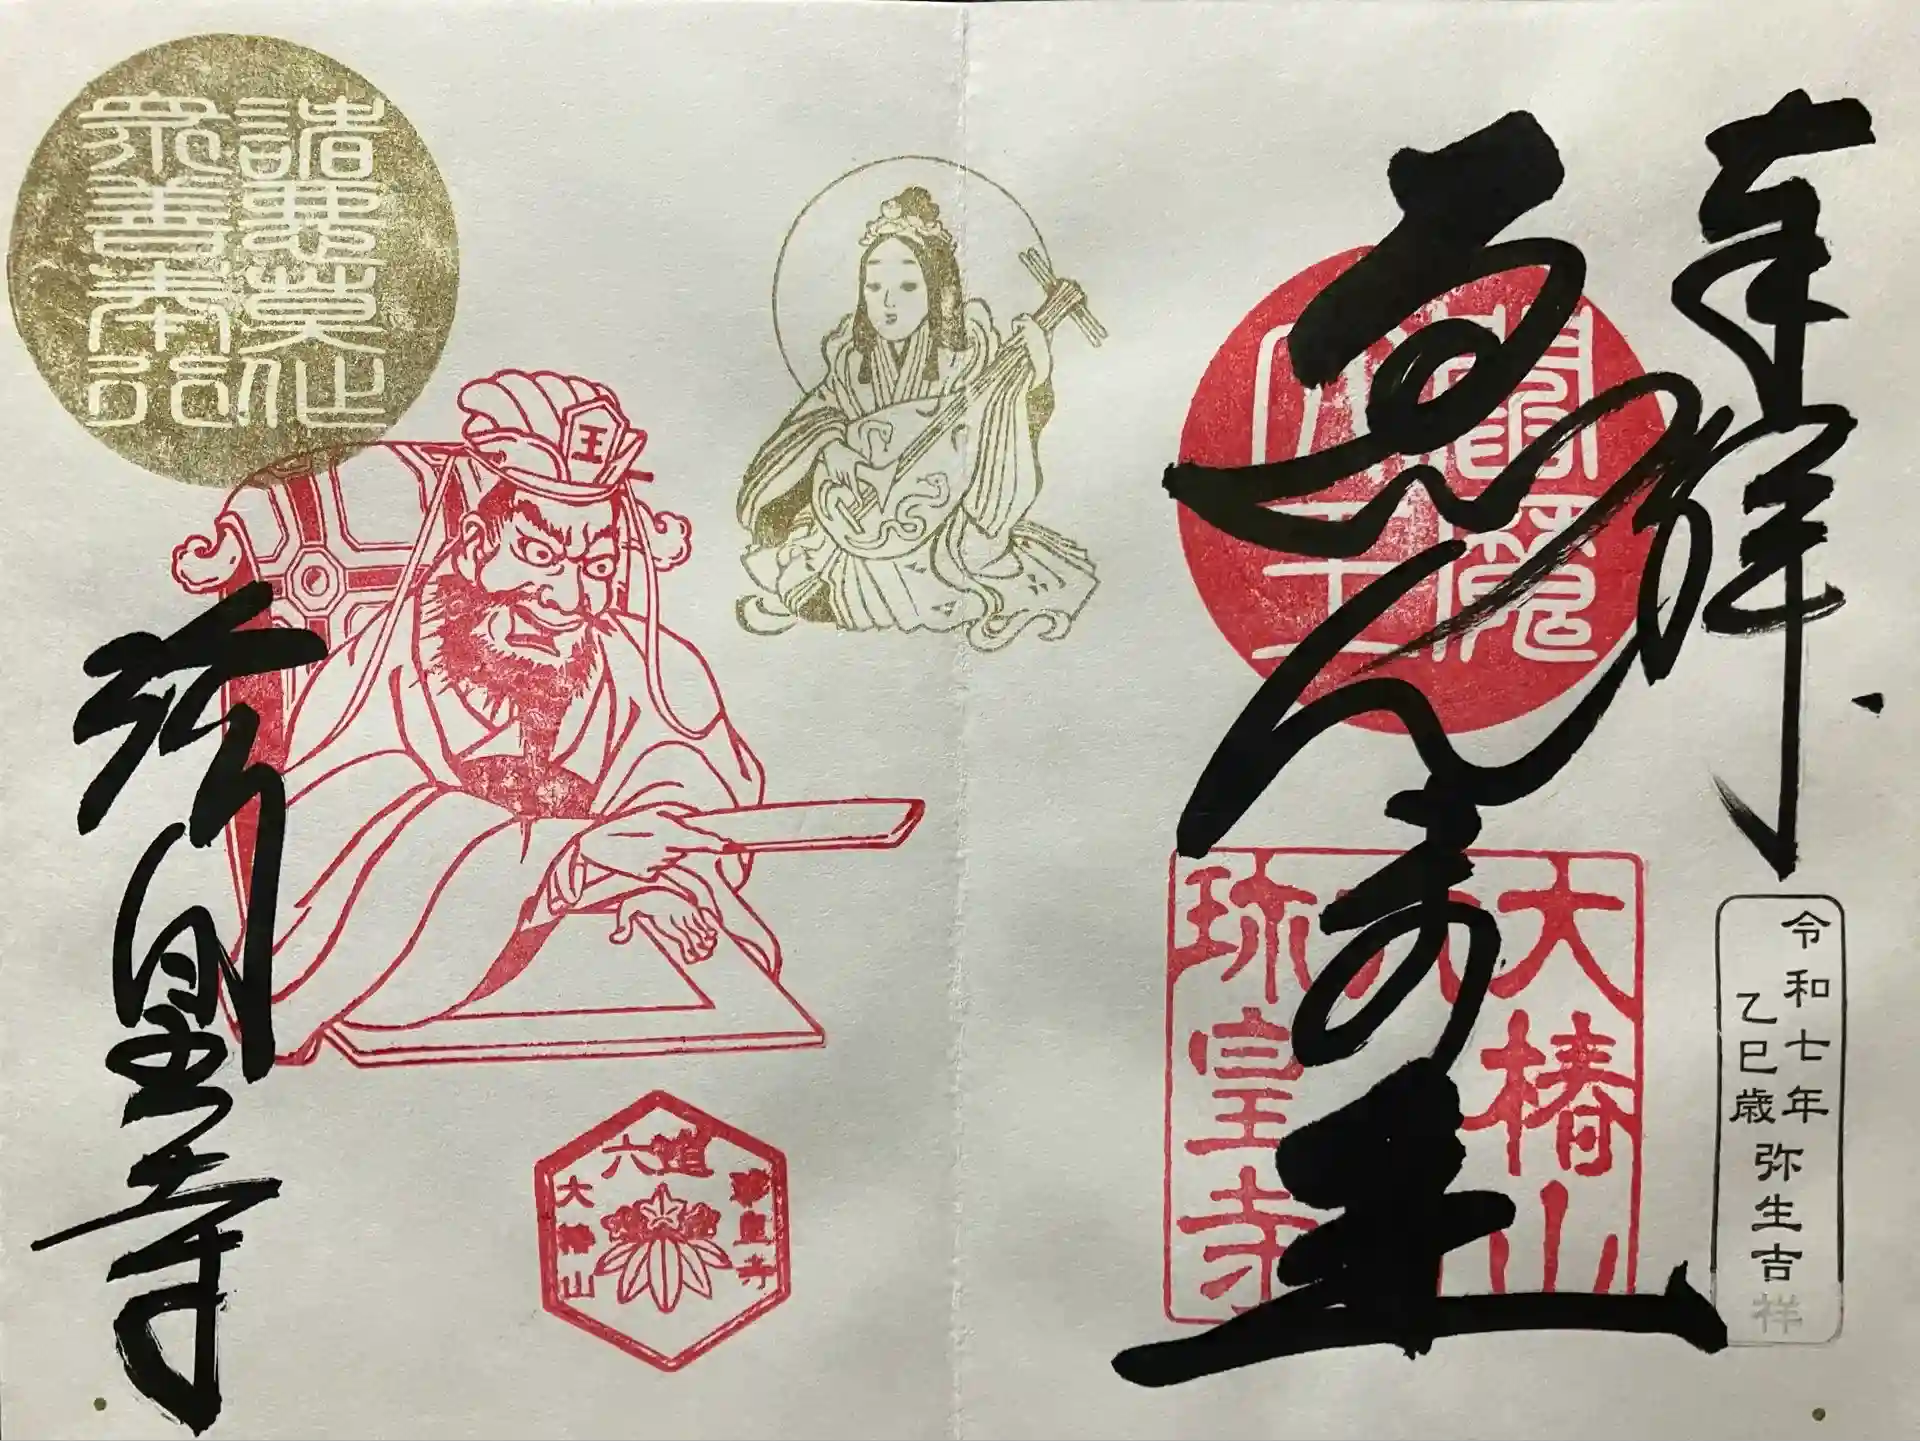 奉拝
ゑんま王
閻魔
大椿山
六道
珍皇寺
令和七年
乙巳歳
弥生吉祥
諸悪莫作
衆善奉行
王
珍皇寺
六道
大椿山
珍皇寺